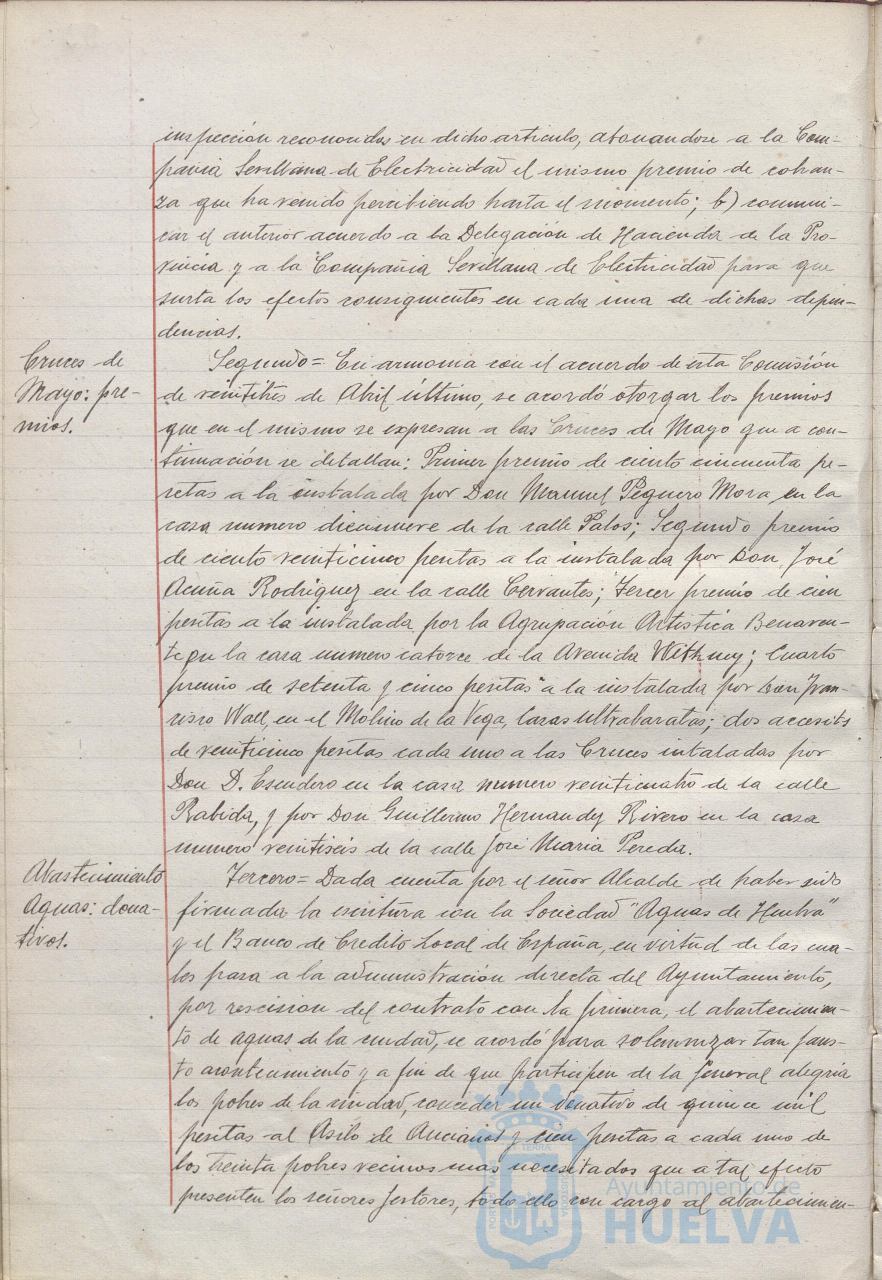 inspección reconocidos en dicho articulo, abonandose a la Com-
pañia Sevillana de Electricidad el mismo premio de cobran-
za que ha venido percibiendo hasta el momento; b) comuni-
car el anterior acuerdo a la Delegación de Hacienda de la Pro-
vincia y a la Compañia Sevillana de Electricidad para que
surta los efectos consiguientes en cada una de dichas depen-
dencias.
Cruces de
Mayo: pre-
mios.
Segundo= En armonia con el acuerdo de esta Comisión
de veintitrés de Abril último, se acordó otorgar los premios
que en el mismo se expresan a las Cruces de Mayo que a con-
tinuación se detallan: Primer premio de ciento cincuenta pe-
setas a la instalada por Don Manuel Peguero Mora, en la
casa numero diecinueve de la calle Palos; Segundo premio
de ciento veinticinco pesetas a la instalada por Don José
Acuña Rodriguez en la calle Cervantes; Tercer premio de cien
pesetas a la instalada por la Agrupación Artistica Benaven-
te en la casa numero catorce de la Avenida Withney; Cuarto
premio de setenta y cinco pesetas a la instalada por Don Fran-
cisco Wall en el Molino de la Vega, Casas ultrabaratas; dos accesits
de veinticinco pesetas cada uno a las Cruces intaladas por
Don D. Escudero en la casa numero veinticuatro de la calle
Rabida, y por Don Guillermo Hernandez Rivero en la casa
numero veintiseis de la calle José Maria Pereda.
Abastecimiento
Aguas: dona-
tivos.
Tercero= Dada cuenta por el señor Alcalde de haber sido
firmada la escritura con la Sociedad "Aguas de Huelva"
y el Banco de Credito Local de España, en virtud de las cua-
les pasa a la administración directa del Ayuntamiento,
por rescision del contrato con la primera, el abastecimien-
to de aguas de la ciudad, se acordó para solemnizar tan faus-
to acontecimiento y a fin de que participen de la general alegria
los pobres de la ciudad, conceder un donativo de quince mil
pesetas al Asilo de Ancianos y cien pesetas a cada uno de
los treinta pobres vecinos mas necesitados que a tal efecto
presenten los señores Gestores, todo ello con cargo al abastecimien-
Ayuntamiento de
HUELVA